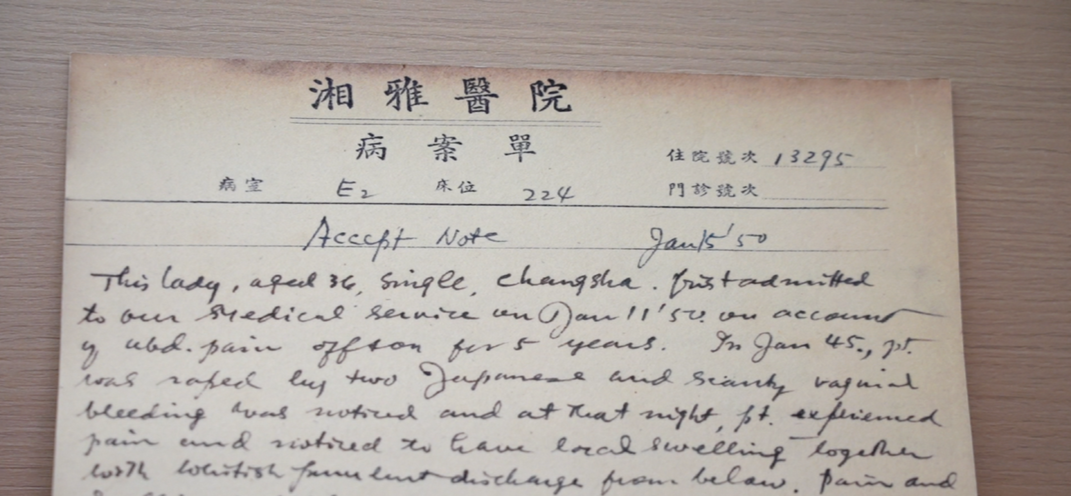 湘雅醫院
病案單
住院號次 13295
病室 E2 床位 224 門診號次
Accept Note Jan 15 '50
This lady, aged 36, single, Changsha. first admitted
to our medical service on Jan 11 '50. on account
of abd. pain off & on for 5 years. In Jan 45., pt.
was raped by two Japanese and scanty vaginal
bleeding was noticed and at that night, pt. experienced
pain and noticed to have local swelling together
with whitish purulent discharge from below. Pain and